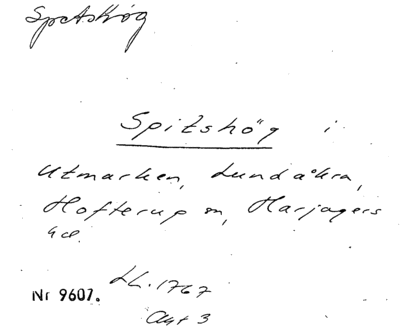 Spetshög
Spitshög i
Utmarken, Lundåkra,
Hofterup sn, Harjagers
hd.
Lh. 1767
Nr 9607.
Akt 3